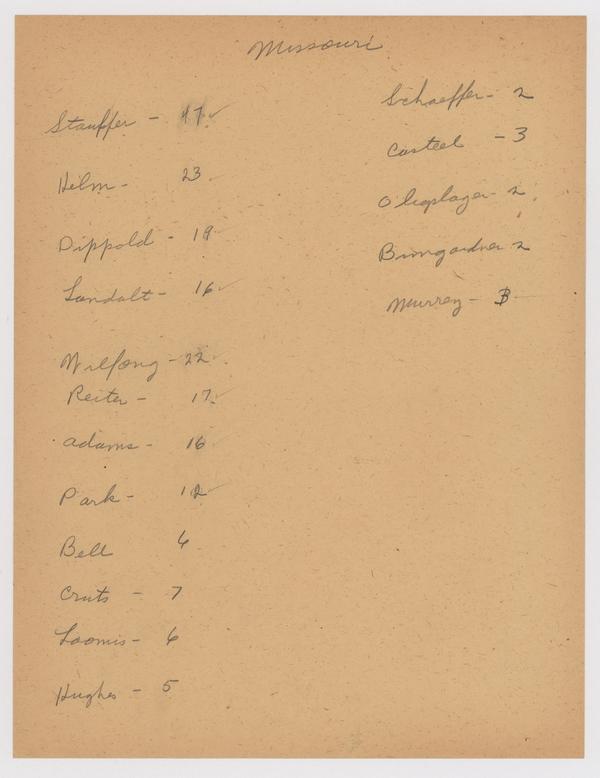 Missouri
Stauffer - 47 ✓
Helm - 23
Dippold - 19
Landolt - 16 ✓
Wilfong - 22
Reiter - 17 ✓
Adams - 16
Park - 12 ✓
Bell 6
Cruts - 7
Loomis - 6
Hughes - 5
Schaeffer - 2
Casteel - 3
- 2
Bumgardner 2
Murrey -